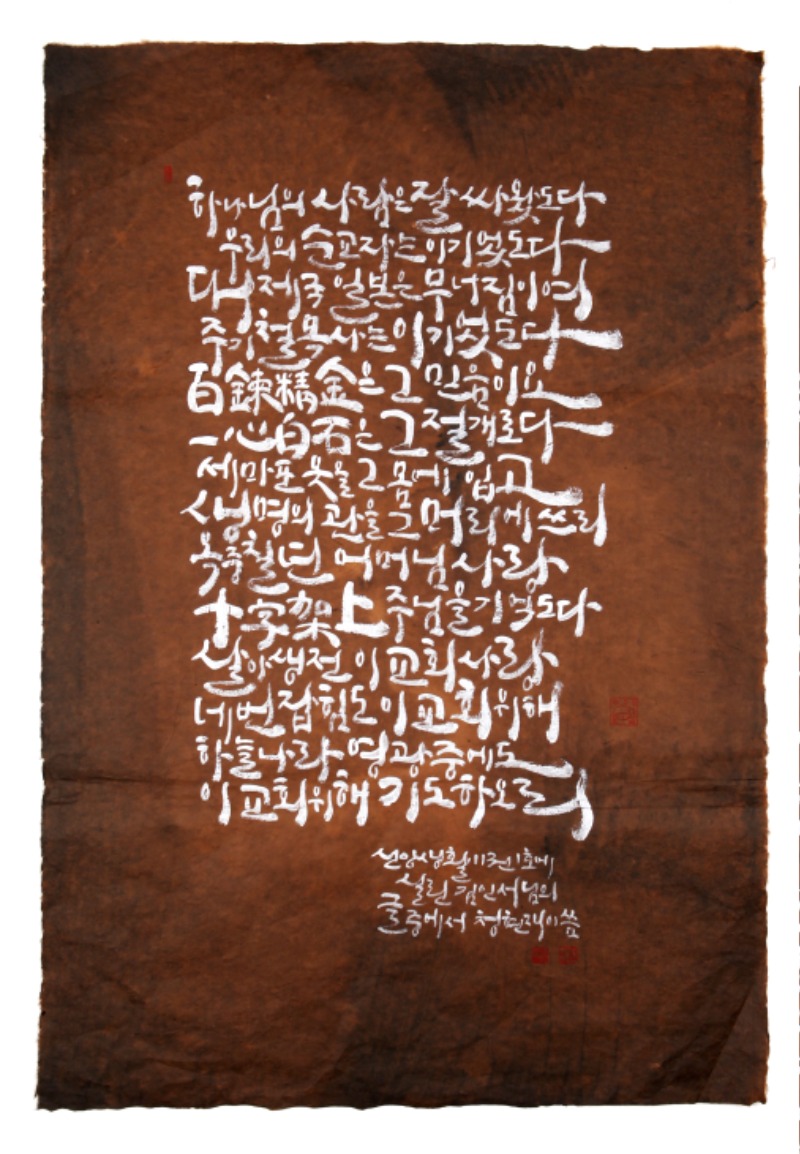 하나님의 사람은 잘 싸웠도다
우리의 순교자는 이기었도다
대제국 일본은 무너짐이여
주기철 목사는 이기었도다
百鍊精金은 그 믿음이오
一心白石은 그 절개로다
세마포 옷을 그 몸에 입고
생명의 관을 그 머리에 쓰리
옥중칠년 어머님 사랑
十字架上 주님을 기억도다
살아생전 이 교회 사랑
네번 접힘도 이 교회 위해
하늘나라 영광 중에도
이 교회 위해 기도하오리
신앙생활 11권 1호에
실린 김인서님의
글 중에서 청현재이 씀